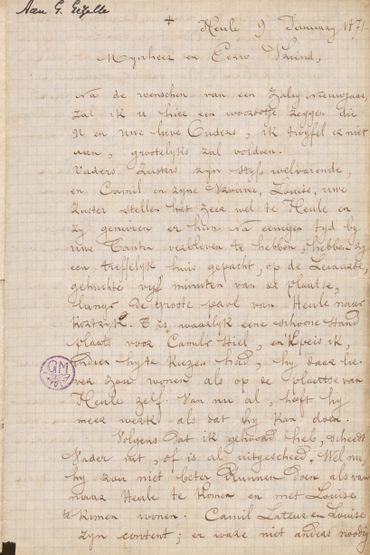 Aan G. Gezelle
+
Heule 9 January 1771.
Mynheer en Eerw Vriend,
Na de wenschen van een zalig nieuwjaar,
zal ik u hier een woordetje zeggen die
U en uwe lieve Ouders, ik twyfel er niet
aan, grootelyks zal voldoen.
Vaders Zusters zyn styf welvarende,
en Camil en zyne Vrouwe, Louise, uwe
Zuster stellen het zeer wel te Heule en
zy gens̈ hun Na eenigen tyd by
uwe Tante verbleven te hebben, hebben zy
een treffelyk huis gepacht, op de
gehuchte vyf minuten van de plaatse,
langs de groote pavé van Heule naar
Kortryk. 't Is waarlyk eene schoone stand
plaats voor Camil's stiel, en 'k peis ik,
indien hy te kiezen had, hy daar lie-
ver zou wonen als op de plaatse van
Heule zelf. Van nu al, heeft hy
meer werk als dat hy kan doen.
Volgens dat ik gehoord heb, scheedt
Vader uit, of is al uitgescheed. Wel nu,
hy zou niet beter kunnen doen als van
naar Heule te komen en met Louise
te komen wonen. Camil Lateur en Louise
zyn content; er ware niet anders noodig
GM